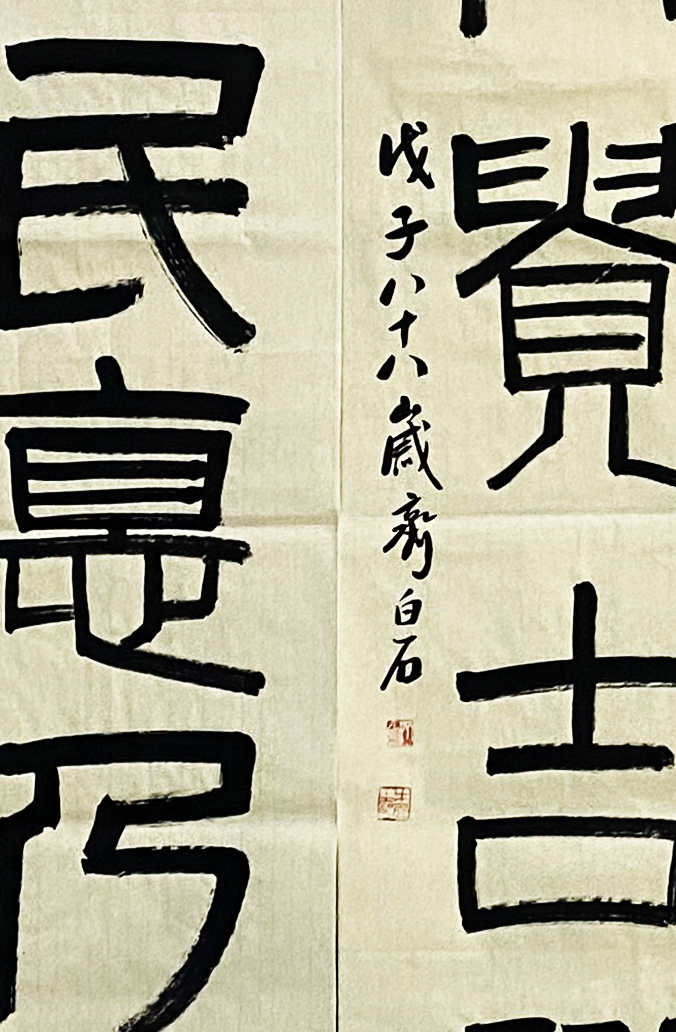 覺吉
戊子八十八歲齊白石
民悳乃